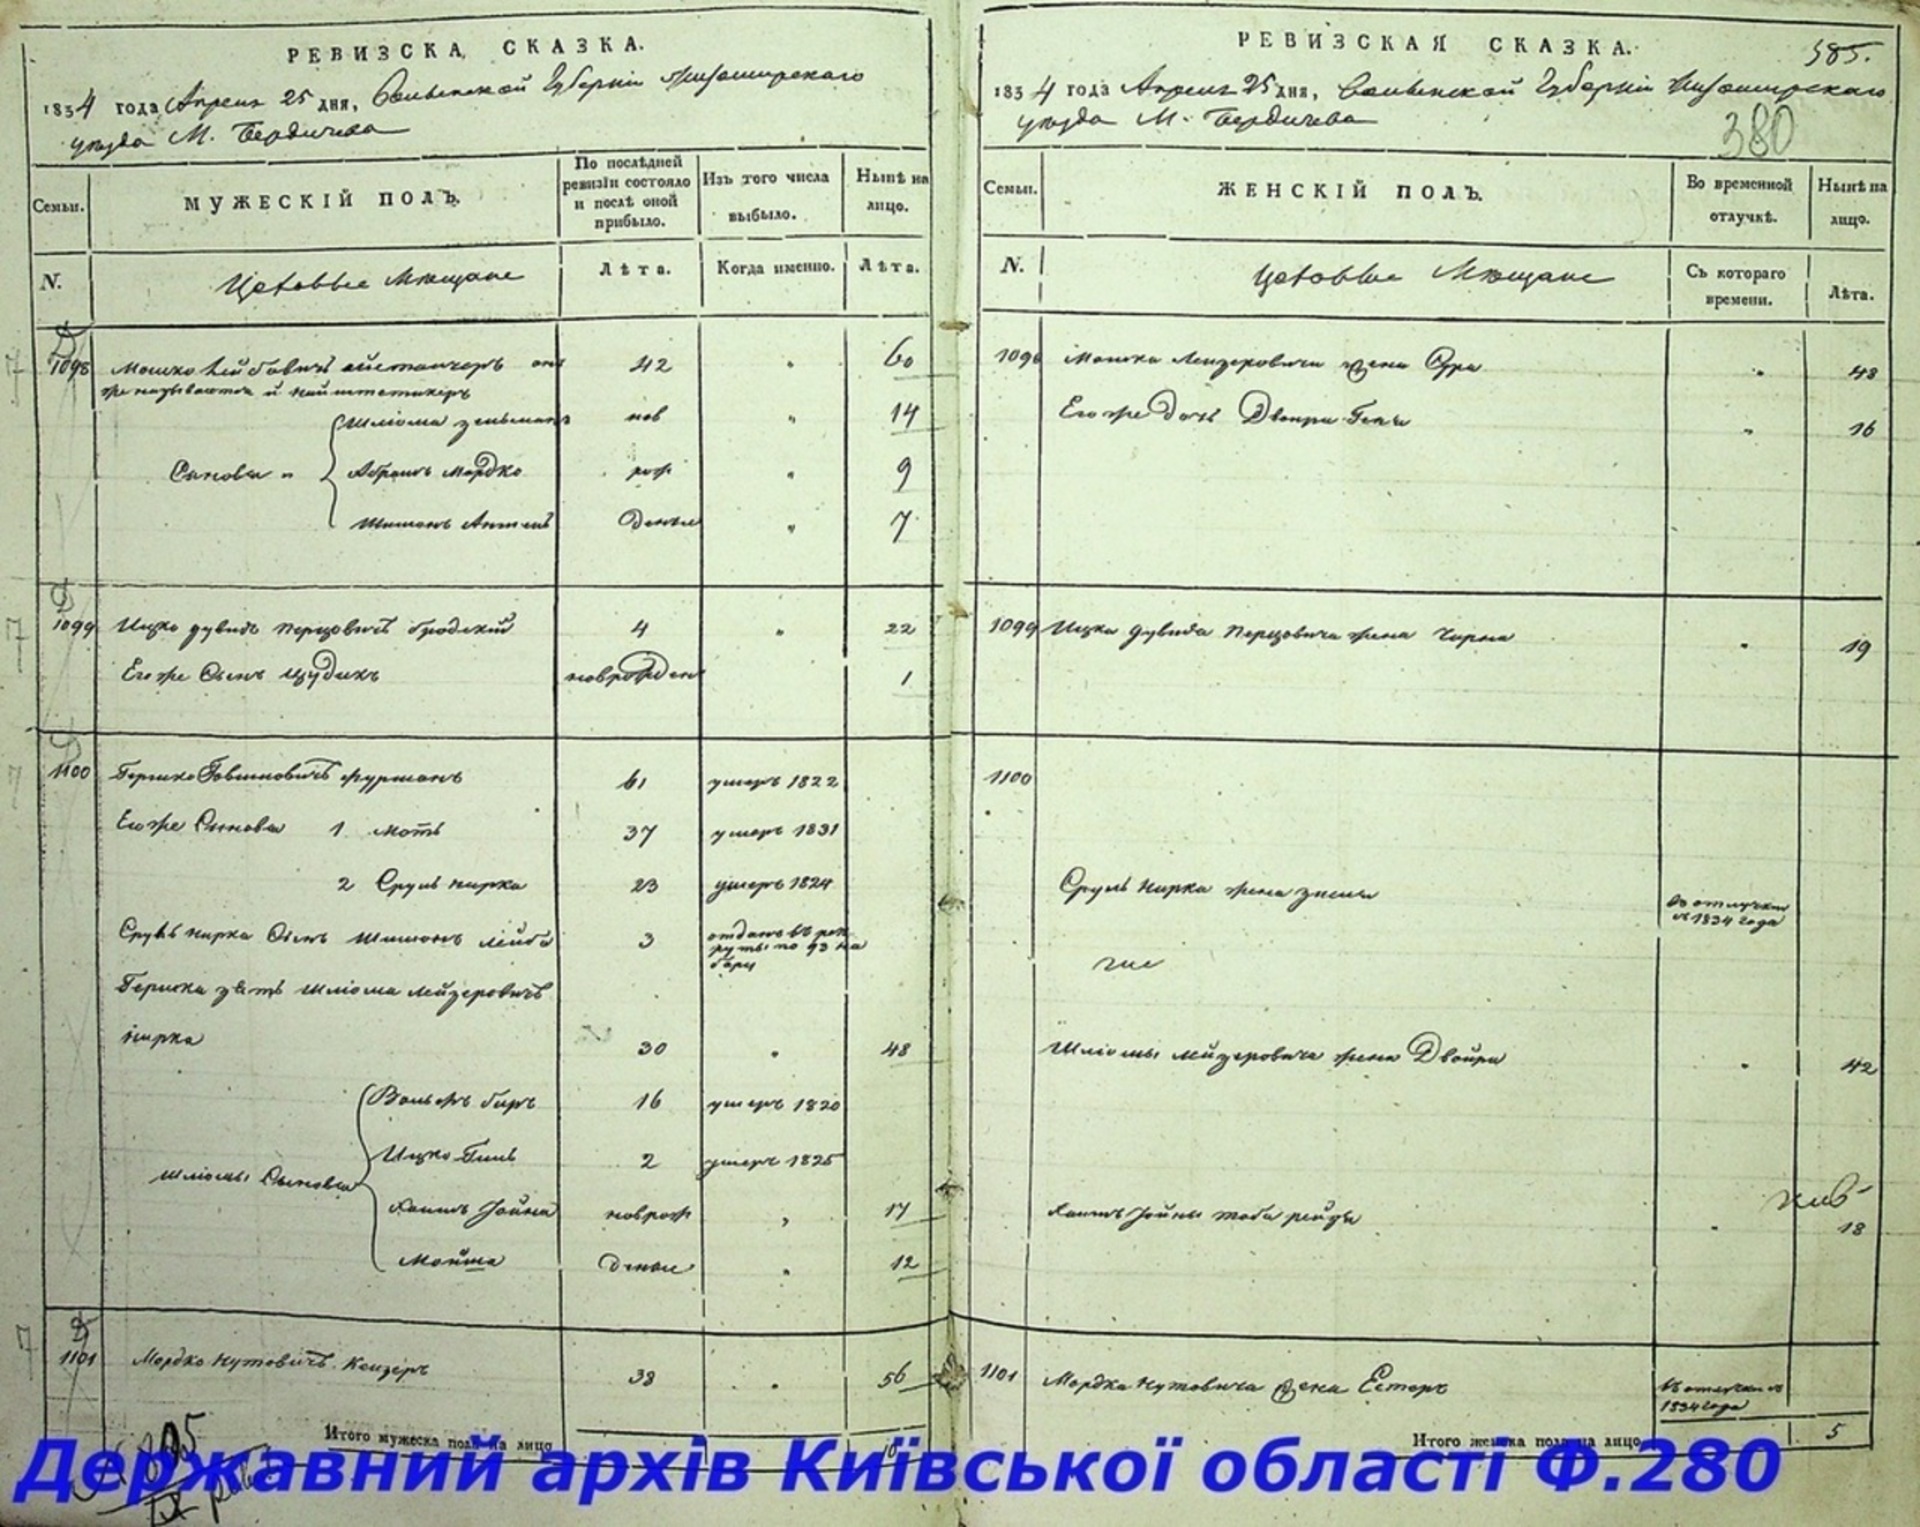 РЕВИЗСКА СКАЗКА.
1834 года Апреля 25 дня, Волынской Губерніи Житомирскаго
уезда М. Бердичева
Семьи.
МУЖЕСКІЙ ПОЛЪ.
По послѣдней ревизіи состояло и послѣ оной прибыло.
Изъ того числа выбыло.
Нынѣ на лицо.
N.
Мещане
Лѣта.
Когда именно.
Лѣта.
1098 Мошко 42 " 60
нов " 14
Сыновья Абрамъ Мордко рож " 9
Шимонъ " 7
1099 Ицко Дувидъ Перцовичъ Бродскій 4 " 22
Его же Сынъ новорожден 1
1100 Гершко фурманъ 61 умеръ 1822
Его же Сыновья 1 Мотъ 37 умеръ 1831
2 Сруль Кирка 23 умеръ 1824
Сруль Кирка Сынъ Шимонъ Лейба 3 отданъ в рекруты по 93 набору
Гершка зять Шліома Лейзеровичъ
Кирка 30 " 48
Вольфъ Беръ 16 умеръ 1820
Ицко 2 умеръ 1825
Шліомы Сыновья
Хаимъ Іойна новрож " 17
Мойша " 12
1101 Мордко Нутовичъ 38 " 56
Итого мужеска пола на лицо 10
РЕВИЗСКАЯ СКАЗКА.
385.
1834 года Апреля 25 дня, Волынской Губерніи Житомирскаго
уезда М. Бердичева
380
Семьи.
ЖЕНСКІЙ ПОЛЪ.
Во временной отлучкѣ.
Нынѣ на лицо.
N.
Мещане
Съ котораго времени.
Лѣта.
1098 Мошка жена Сура " 48
Его же дочь Двойра " 16
1099 Ицка Дувида Перцовича жена Чарна " 19
1100
Сруль Кирка жена в отлучки с 1834 года
Шліомы Лейзеровича жена Двойра " 42
Хаимъ Іойны " 18
1101 Мордка Нутовича жена Естеръ в отлучки с 1834 года
Итого женска пола на лицо 5
Державний архів Київської області Ф.280